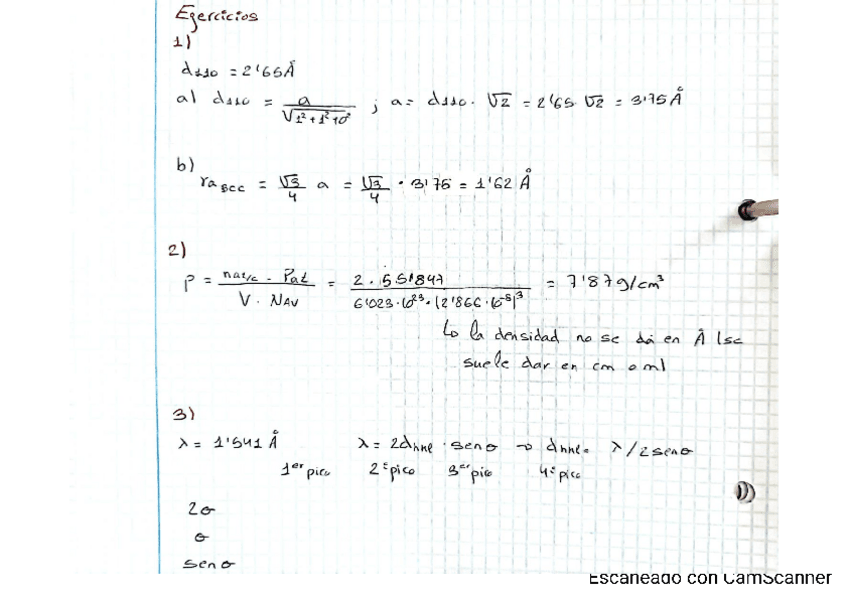 Ejercicios
1)
d110 = 2'65Å
a) d110 = a / √1²+1²+0² ; a = d110 · √2 = 2'65 √2 = 3'75 Å
b)
ra BCC = √3/4 a = √3/4 · 3'75 = 1'62 Å
2)
ρ = nat/c · Pat / V · NAV = 2 · 55'847 / 6'023·10²³·(2'866·10⁻⁸)³ = 7'87g/cm³
↳ la densidad no se dá en Å (se
suele dar en cm o ml
3)
λ = 1'541 Å λ = 2dhkl · senθ → dhkl = λ/2senθ
1er pico 2º pico 3er pico 4º pico
2θ
θ
senθ
Escaneado con CamScanner